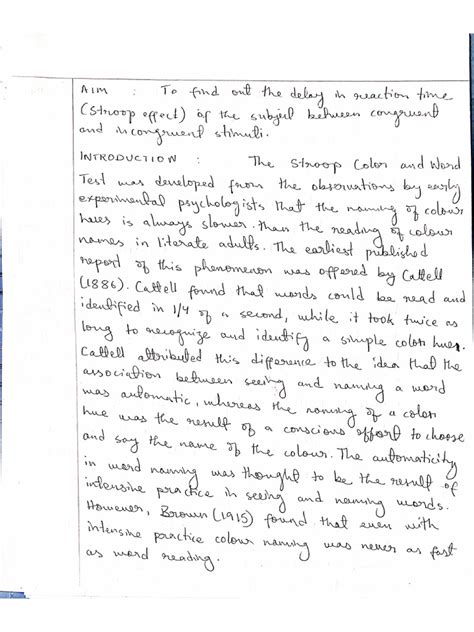 AIM : To find out the delay in reaction time
(Stroop effect) of the subject between congruent
and incongruent stimuli.
INTRODUCTION : The Stroop Color and Word
Test was developed from the observations by early
experimental psychologists that the naming of colour
hues is always slower than the reading of colour
names, in literate adults. The earliest published
report of this phenomenon was offered by Cattell
(1886). Cattell found that words could be read and
identified in 1/4 of a second, while it took twice as
long to recognize and identify a simple color hues.
Cattell attributed this difference to the idea that the
association between seeing and naming a word
was automatic, whereas the naming of a color
hue was the result of a conscious effort to choose
and say the name of the colour. The automaticity
in word naming was thought to be the result of
intensive practice in seeing and naming words.
However, Brown (1915) found that even with
intensive practice colour naming was never as fast
as word reading.